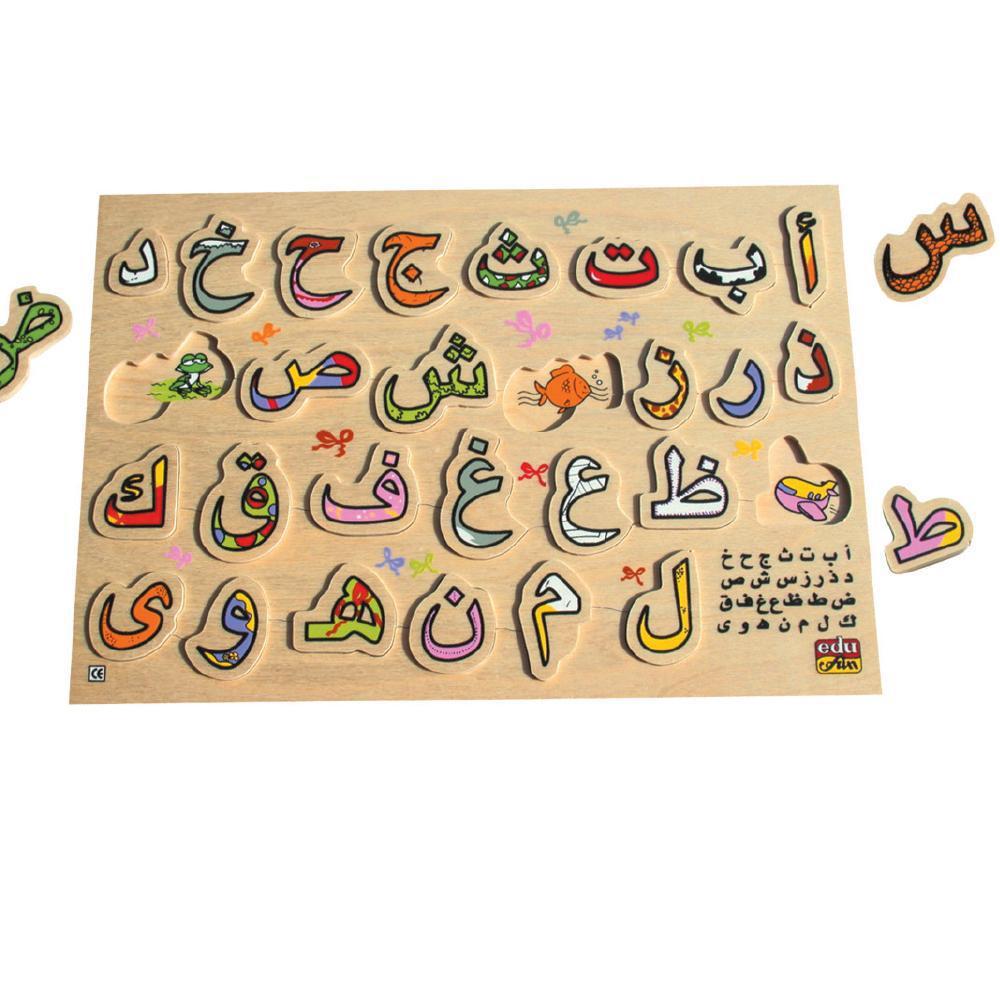 أ ب ت ث ج ح خ د
ذ ر ز ش ص
ظ ع غ ف ق ك
ل م ن ه و ى
س
ط
ض
أ ب ت ث ج ح خ
د ذ ر ز س ش ص
ض ط ظ ع غ ف ق
ك ل م ن ه و ى
edu
fun
CE